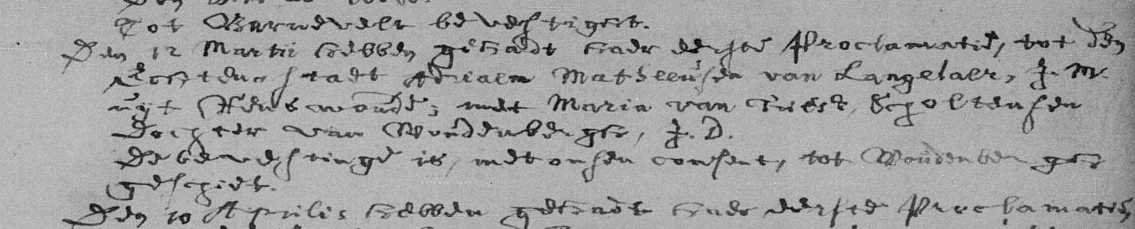 Tot Barnevelt bevestiget.
Den 12 Martii hebben gehadt haer eerste Proclamatie, tot den
Echtenstadt Adriaen Matheeusen van Langelaer, J. M.
uijt Renswoude; met Maria van Scholtensen
Dochter van Woudenbergh, J. D.
De bevestinge is, met onsen consent, tot Woudenbergh
geschiet.
Den 10 Aprilis hebben gehadt haer eerste Proclamatie,